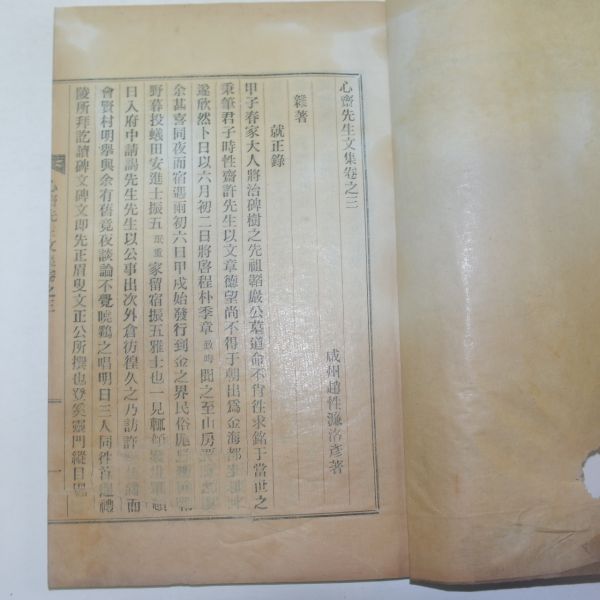 心齋先生文集卷之三
咸州趙性濂洛彥著
雜著
就正錄
甲子春家大人將治碑樹之先祖韜嚴公墓道命不肯徃求銘于當世之
秉筆君子時性齋許先生以文章德望尚不得于朝出爲金海都
遂欣然卜日以六月初二日將啓程朴季章致晦聞之至山房
余甚喜同夜而宿遇雨初六日甲戌始發行到金之界民俗
野暮投蟻田安進士振五珉重家留宿振五雅士也一見輒
日入府中請謁先生先生以公事出次外倉彷徨久之乃訪許而
會賢村明舉與余有舊竟夜談論不覺曉鷄之唱明日三人同徃首禮
陵所拜訖讀碑文碑文即先正眉叟文正公所撰也登
心齋先生文集卷之三
一